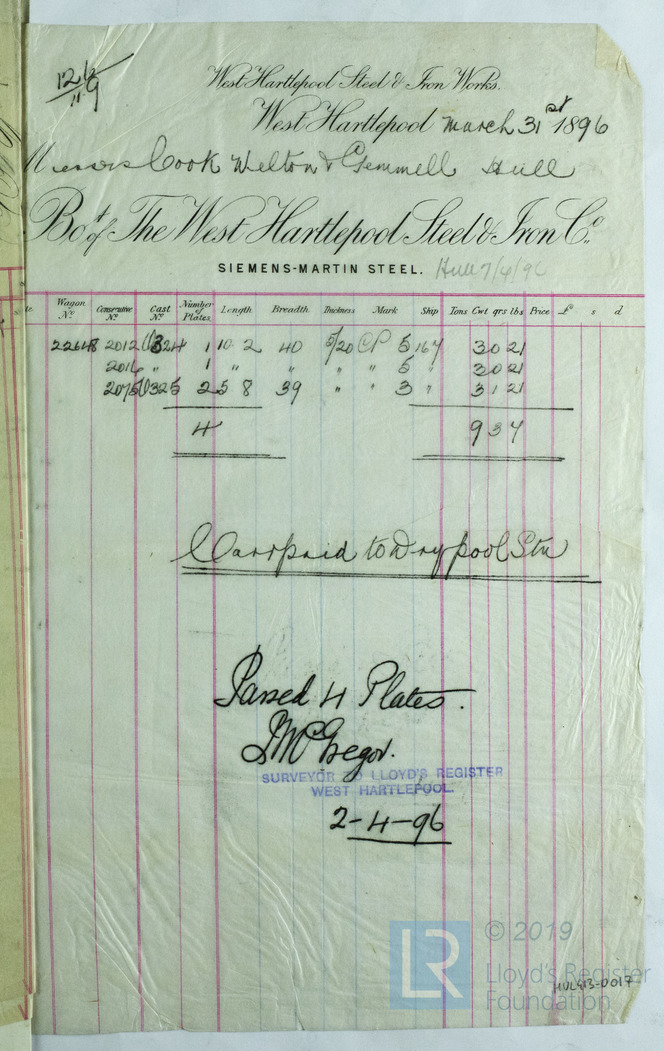 126
11.9
West Hartlepool Steel & Iron Works.
West Hartlepool March 31st 1896
Messrs Cook Welton & Gemmell Hull
Bot. of The West Hartlepool Steel & Iron Co.
SIEMENS-MARTIN STEEL. Hull 7/4/96
Wagon No. Consecutive No. Cast No. Number of Plates. Length Breadth. Thickness Mark Ship Tons Cwt qrs lbs Price £ s d
22648 2012 324 1 10 2 40 5/20 CP 5 167 3 0 21
2014 " 1 " " " " 5 " 3 0 21
2075 325 2 5 8 39 " " 3 " 3 1 21
4 9 3 7
Carr paid to Drypool Stn
Passed 4 Plates.
J McGregor.
SURVEYOR TO LLOYD'S REGISTER
WEST HARTLEPOOL.
2-4-96
LR
© 2019
Lloyd's Register
Foundation
HUL413-0017